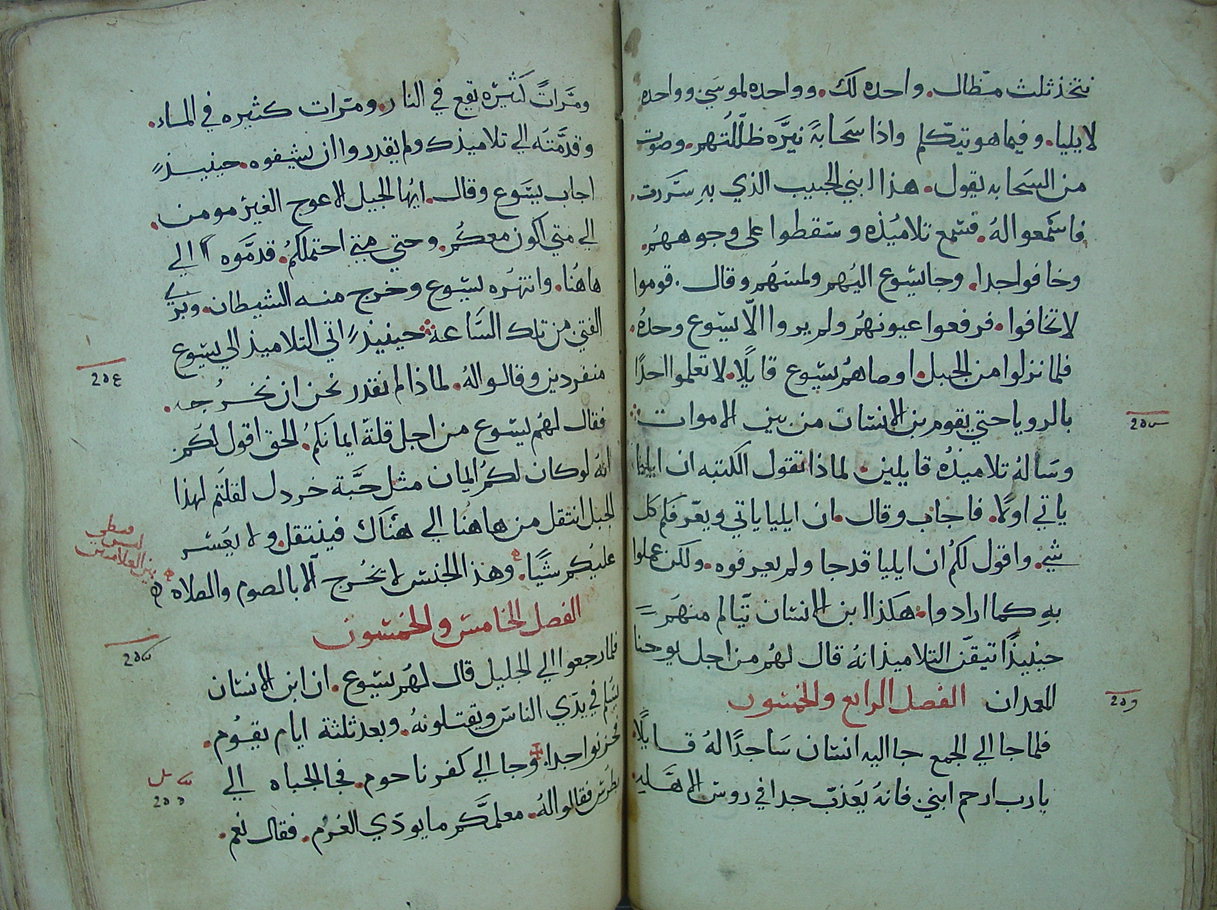 نتخذ ثلث مظال. واحده لك. وواحده لموسي وواحده
لايليا. وفيما هو يتكلم واذا سحابة نيره ظللتهم. وصوت
من السحابه يقول. هذا ابني الحبيب الذي به سررت.
فاسمعوا له. فسمع تلاميذه وسقطوا علي وجوههم.
وخافوا جدا. وجا يسوع اليهم ولمسهم وقال. قوموا
لا تخافوا. فرفعوا عيونهم ولم يروا الا يسوع وحده.
فلما نزلوا من الجبل. اوصاهم يسوع قايلا. لا تعلموا احدا
بالرويا حتي يقوم بن الانسان من بين الاموات
وساله تلاميذه قايلين. لماذا تقول الكتبه ان ايليا
ياتي اولا. فاجاب وقال. ان ايليا ياتي ويعرفكم كل
شي. واقول لكم ان ايليا قد جا ولم يعرفوه. ولكن عملوا
به كما ارادوا. هكذا ابن الانسان يتالم منهم
حينيذا تيقن التلاميذ انه قال لهم من اجل يوحنا
المعمدان الفصل الرابع والخمسون
فلما جا الي الجمع جا اليه انسان ساجدا له قايلا
يا رب ارحم ابني فانه يعذب جدا في روس الاهله
ومرات كثيره يقع في النار. ومرات كثيره في الماء.
وقدمته الي تلاميذك ولم يقدروا ان يشفوه. حينيذ
اجاب يسوع وقال. ايها الجيل الاعوج الغير مومن.
الي متي اكون معكم. وحتي متي احتملكم. قدموه الي
هاهنا. وانتهره يسوع وخرج منه الشيطان. وبري
الفتي من تلك الساعة حينيذ اتي التلاميذ الي يسوع
منفردين وقالوا له. لماذا لم نقدر نحن ان نخرجه.
فقال لهم يسوع من اجل قلة ايمانكم. الحق اقول لكم
انه لو كان لكم ايمان مثل حبة خردل لقلتم لهذا
الجبل انتقل من هاهنا الي هناك فينتقل. ولا يعسر
عليكم شيا. وهذا الجنس لا يخرج الا بالصوم والصلاه
الفصل الخامس والخمسون
فلما رجعوا الي الجليل قال لهم يسوع. ان ابن الانسان
يسلم في يدي الناس ويقتلونه. وبعد ثلثة ايام يقوم.
فحزنوا جدا. وجا الي كفرناحوم. فجا الجباه الي
بطرس فقالوا له. معلمكم ما يودي الغرم. فقال نعم.